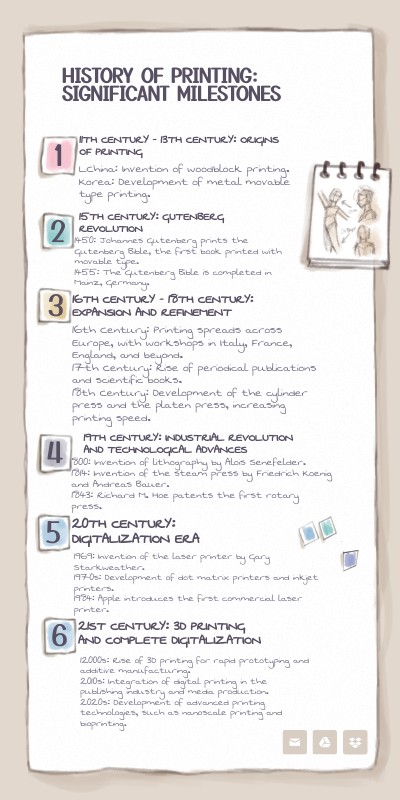 HISTORY OF PRINTING:
SIGNIFICANT MILESTONES
1
11TH CENTURY - 13TH CENTURY: ORIGINS
OF PRINTING
1.China: Invention of woodblock printing.
Korea: Development of metal movable
type printing.
2
15TH CENTURY: GUTENBERG
REVOLUTION
1450: Johannes Gutenberg prints the
Gutenberg Bible, the first book printed with
movable type.
1455: The Gutenberg Bible is completed in
Mainz, Germany.
3
16TH CENTURY - 18TH CENTURY:
EXPANSION AND REFINEMENT
16th Century: Printing spreads across
Europe, with workshops in Italy, France,
England, and beyond.
17th Century: Rise of periodical publications
and scientific books.
18th Century: Development of the cylinder
press and the platen press, increasing
printing speed.
4
19TH CENTURY: INDUSTRIAL REVOLUTION
AND TECHNOLOGICAL ADVANCES
1800: Invention of lithography by Alois Senefelder.
1814: Invention of the steam press by Friedrich Koenig
and Andreas Bauer.
1843: Richard M. Hoe patents the first rotary
press.
5
20TH CENTURY:
DIGITALIZATION ERA
1969: Invention of the laser printer by Gary
Starkweather.
1970s: Development of dot matrix printers and inkjet
printers.
1984: Apple introduces the first commercial laser
printer.
6
21ST CENTURY: 3D PRINTING
AND COMPLETE DIGITALIZATION
12000s: Rise of 3D printing for rapid prototyping and
additive manufacturing.
2010s: Integration of digital printing in the
publishing industry and media production.
2020s: Development of advanced printing
technologies, such as nanoscale printing and
bioprinting.